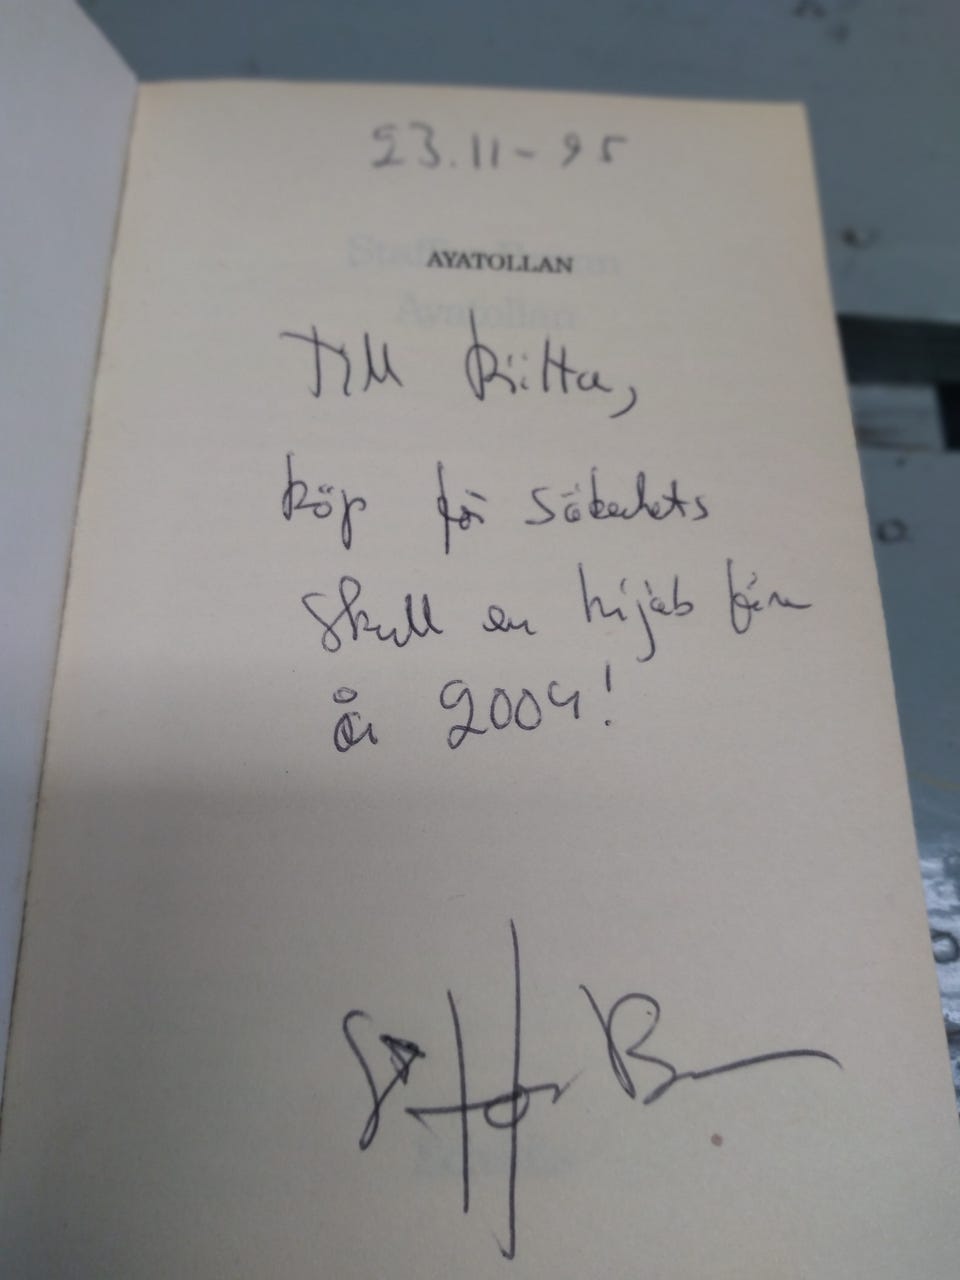 23.11-95
AYATOLLAN
Till Riitta,
köp för säkerhets
skull en hijab före
år 2004!